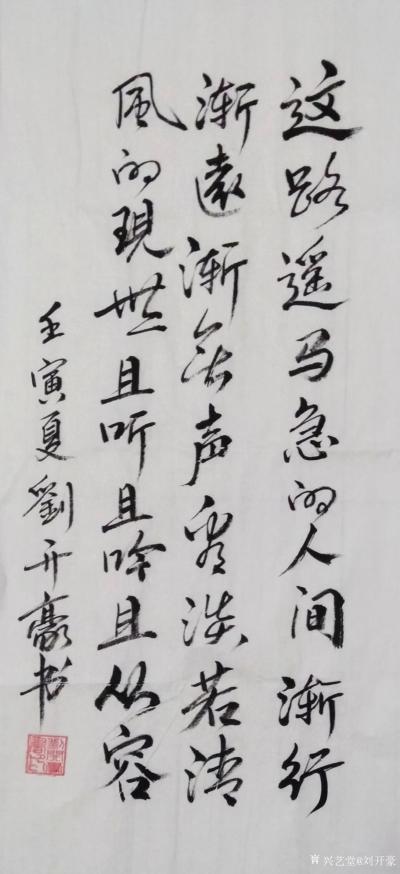 这路遥马急的人间渐行
渐遠渐无声淡若清
風的現世且听且吟且从容
壬寅夏劉开豪书
兴艺堂@刘开豪